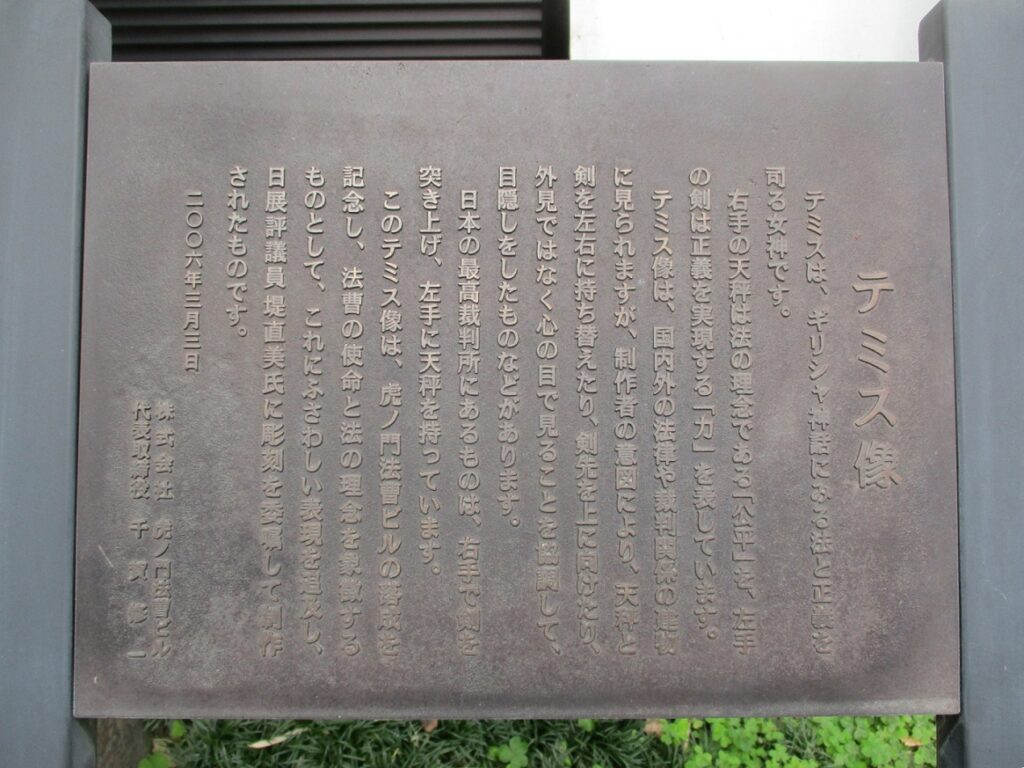 テミス像
テミスは、ギリシャ神話にある法と正義を
司る女神です。
右手の天秤は法の理念である「公平」を、左手
の剣は正義を実現する「力」を表しています。
テミス像は、国内外の法律や裁判関係の建物
に見られますが、制作者の意図により、天秤と
剣を左右に持ち替えたり、剣先を上に向けたり、
外見ではなく心の目で見ることを強調して、
目隠しをしたものなどがあります。
日本の最高裁判所にあるものは、右手で剣を
突き上げ、左手に天秤を持っています。
このテミス像は、虎ノ門法曹ビルの落成を
記念し、法曹の使命と法の理念を象徴する
ものとして、これにふさわしい表現を追及し、
日展評議員 堤直美氏に彫刻を委嘱して制作
されたものです。
二〇〇六年三月三日
株式会社 虎ノ門法曹ビル
代表取締役 千 一